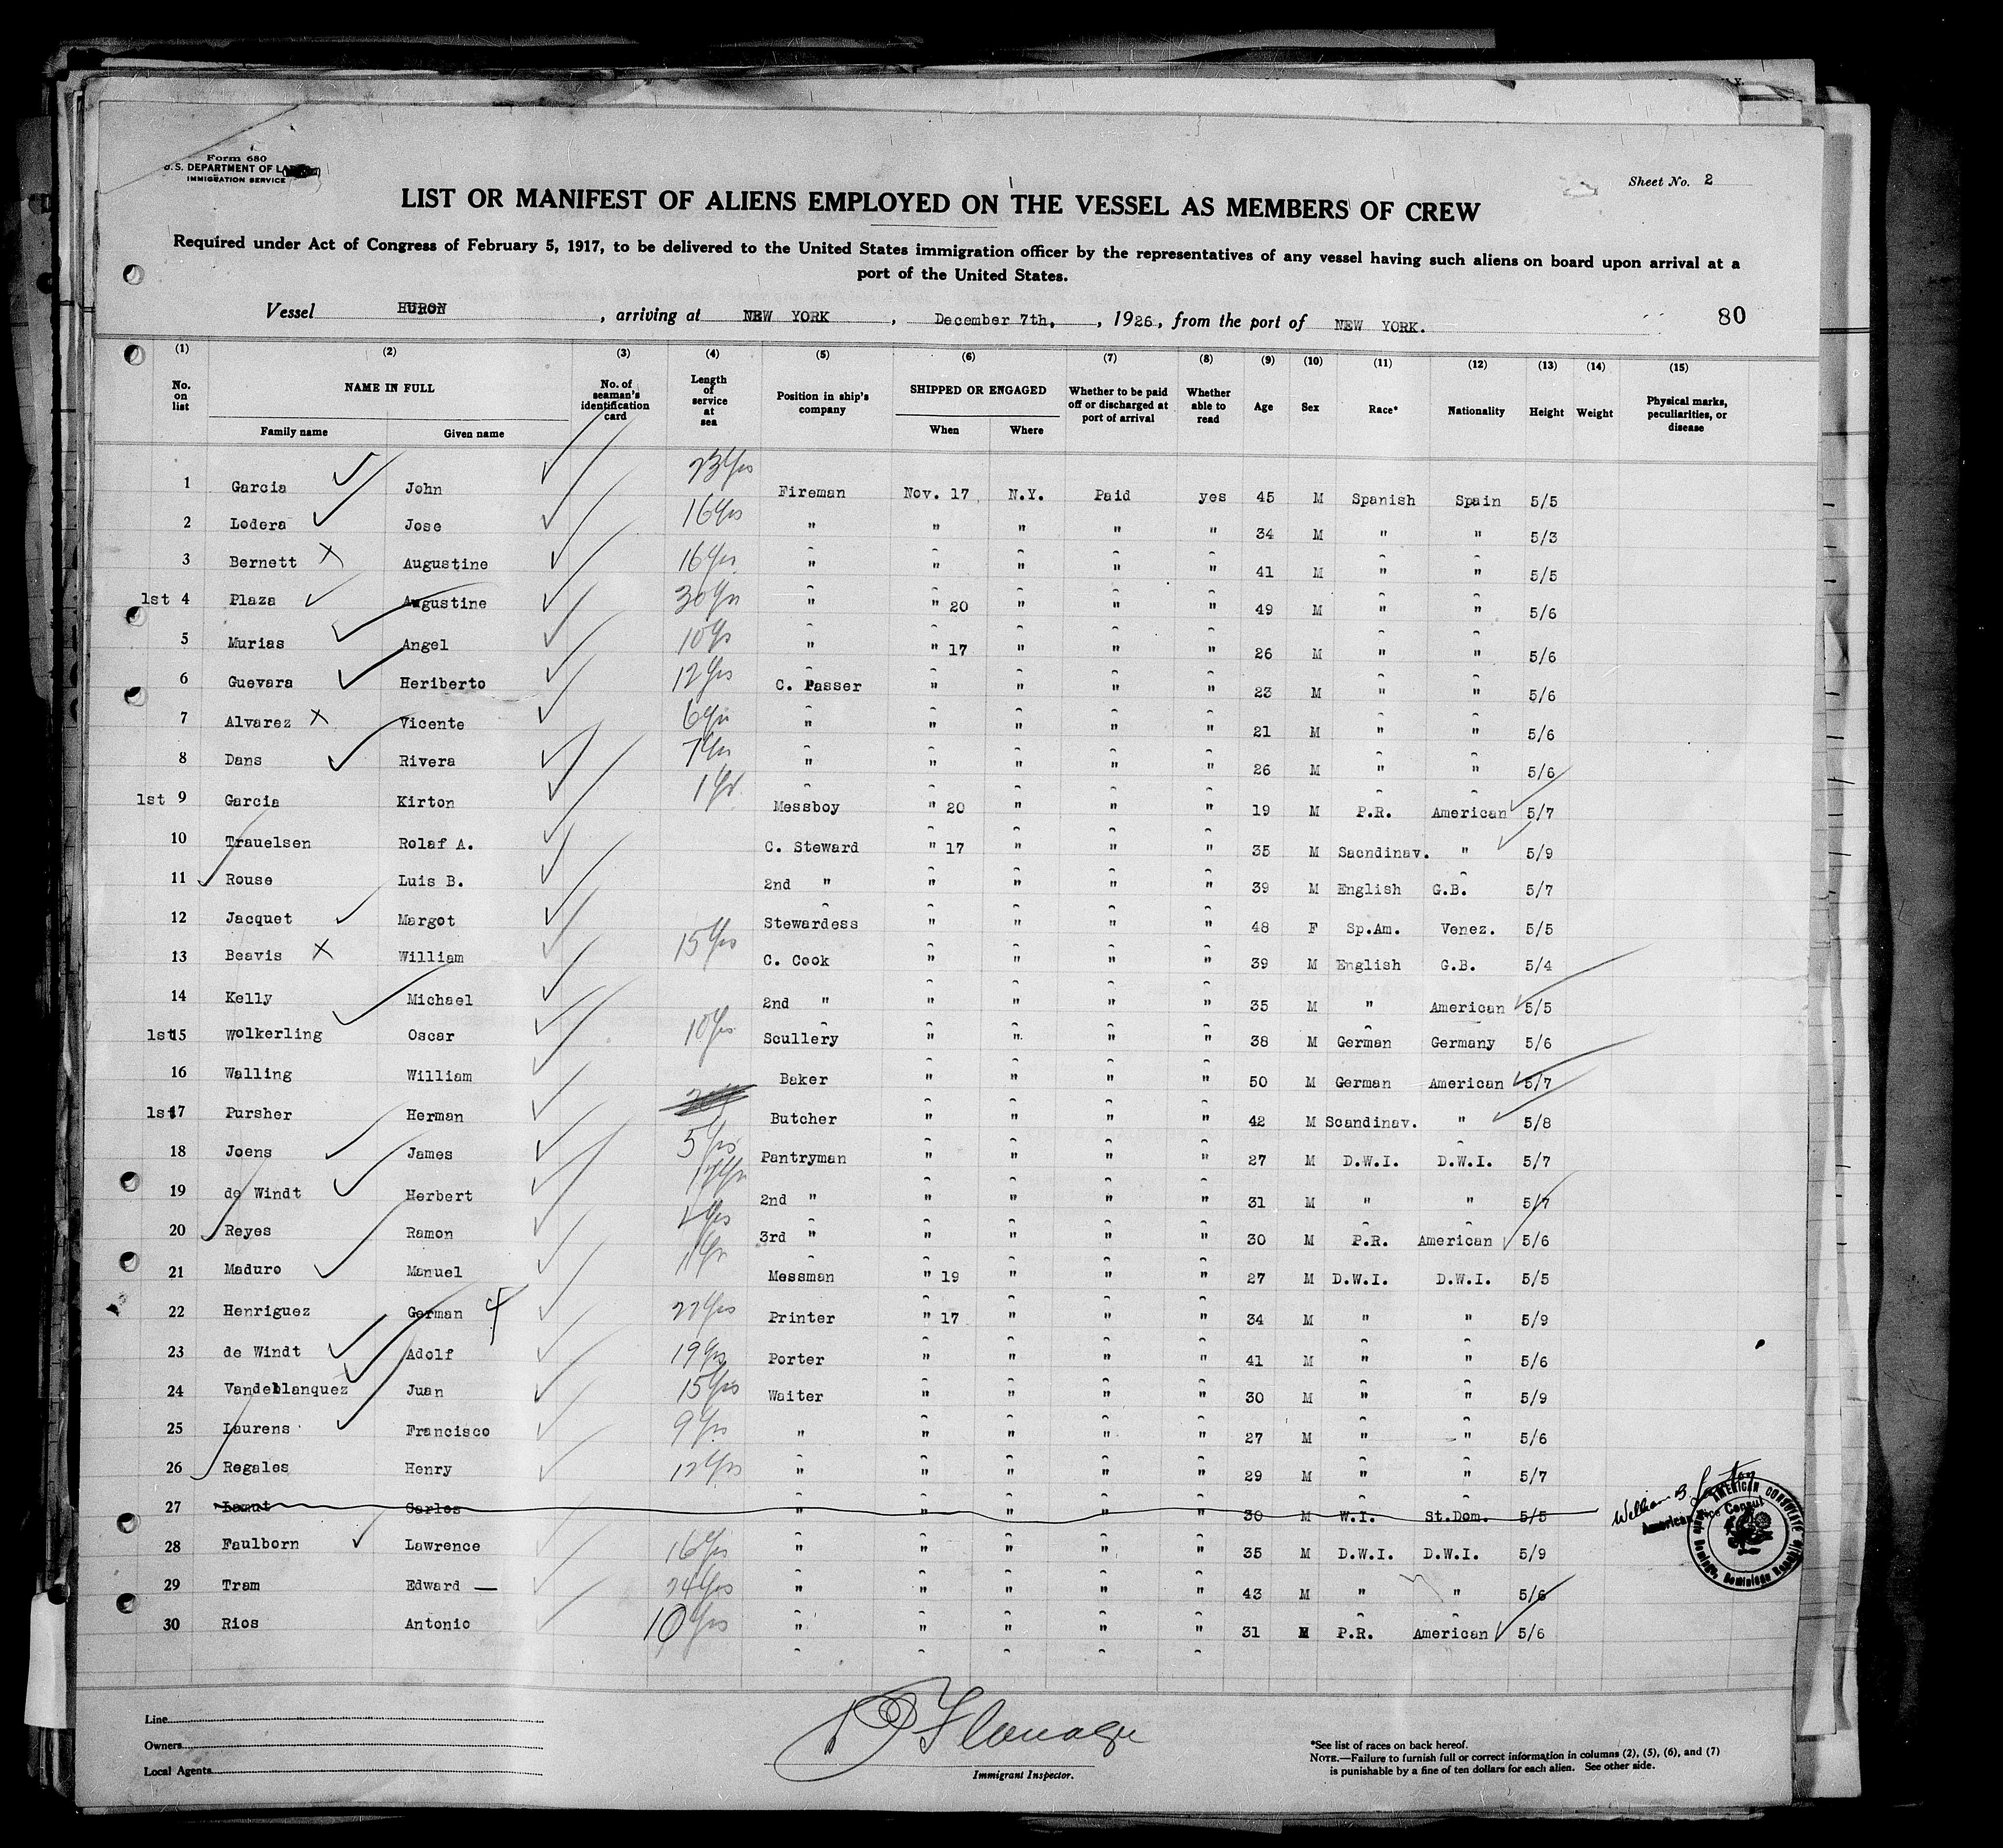 Form 680
U.S. DEPARTMENT OF LABOR
IMMIGRATION SERVICE
Sheet No. 2
LIST OR MANIFEST OF ALIENS EMPLOYED ON THE VESSEL AS MEMBERS OF CREW
Required under Act of Congress of February 5, 1917, to be delivered to the United States immigration officer by the representatives of any vessel having such aliens on board upon arrival at a
port of the United States.
Vessel HURON, arriving at NEW YORK, December 7th, 1926, from the port of NEW YORK. 80
(1) (2) (3) (4) (5) (6) (7) (8) (9) (10) (11) (12) (13) (14) (15)
No. on list NAME IN FULL Family name Given name No. of seaman's identification card Length of service at sea Position in ship's company SHIPPED OR ENGAGED When Where Whether to be paid off or discharged at port of arrival Whether able to read Age Sex Race* Nationality Height Weight Physical marks, peculiarities, or disease
1 Garcia John 23 Yrs Fireman Nov. 17 N.Y. Paid yes 45 M Spanish Spain 5/5
2 Lodera Jose 16 Yrs " " " " " 34 M " " 5/3
3 Bernett X Augustine 16 Yrs " " " " " 41 M " " 5/5
1st 4 Plaza Augustine 30 Yrs " " 20 " " " 49 M " " 5/6
5 Murias Angel 10 Yrs " " 17 " " " 26 M " " 5/6
6 Guevara Heriberto 12 Yrs C. Passer " " " " 23 M " " 5/6
7 Alvarez X Vicente 6 Yrs " " " " " 21 M " " 5/6
8 Dans Rivera 7 Yrs " " " " " 26 M " " 5/6
1st 9 Garcia Kirton 1 Yr. Messboy " 20 " " " 19 M P.R. American 5/7
10 Trauelsen Rolaf A. C. Steward " 17 " " " 35 M Sacndinav. " 5/9
11 Rouse Luis B. 2nd " " " " " 39 M English G.B. 5/7
12 Jacquet Margot Stewardess " " " " 48 F Sp.Am. Venez. 5/5
13 Beavis X William 15 Yrs C. Cook " " " " 39 M English G.B. 5/4
14 Kelly Michael 2nd " " " " " 35 M " American 5/5
1st 15 Wolkerling Oscar 10 Yrs Scullery " " " " 38 M German Germany 5/6
16 Walling William Baker " " " " 50 M German American 5/7
1st 17 Pursher Herman Butcher " " " " 42 M Scandinav. " 5/8
18 Joens James 5 Yrs Pantryman " " " " 27 M D.W.I. D.W.I. 5/7
19 de Windt Herbert Yrs 2nd " " " " " 31 M " " 5/7
20 Reyes Ramon Yrs 3rd " " " " " 30 M P.R. American 5/6
21 Maduro Manuel 1 Yr Messman " 19 " " " 27 M D.W.I. D.W.I. 5/5
22 Henriguez German 22 Yrs Printer " 17 " " " 34 M " " 5/9
23 de Windt Adolf 19 Yrs Porter " " " " 41 M " " 5/6
24 Vandeblanquez Juan 15 Yrs Waiter " " " " 30 M " " 5/9
25 Laurens Francisco 9 Yrs " " " " " 27 M " " 5/6
26 Regales Henry 12 Yrs " " " " " 29 M " " 5/7
27 Lamut Carlos " " " " " 30 M W.I. St.Dom. 5/5 William B.
American Vice Consul
AMERICAN CONSULATE Domingo, Dominican Republic
28 Faulborn Lawrence 16 Yrs " " " " " 35 M D.W.I. D.W.I. 5/9
29 Tram Edward — 24 Yrs " " " " " 43 M " " 5/6
30 Rios Antonio 10 Yrs " " " " " 31 M P.R. American 5/6
Line
Owners
Local Agents
Flanagan
Immigrant Inspector.
*See list of races on back hereof.
NOTE.—Failure to furnish full or correct information in columns (2), (5), (6), and (7)
is punishable by a fine of ten dollars for each alien. See other side.